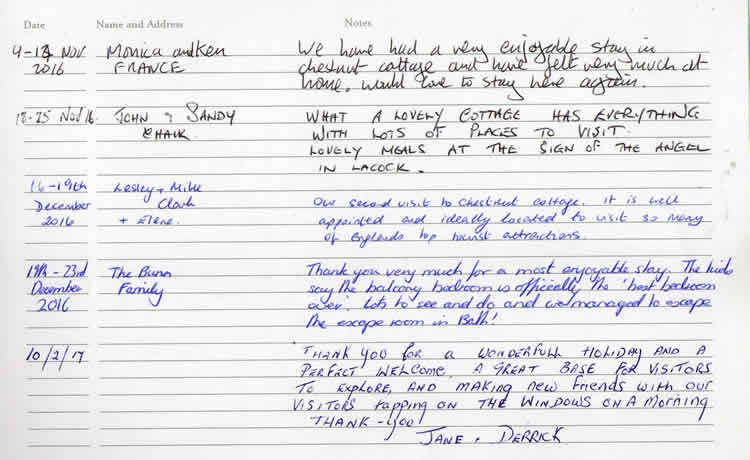 Date Name and Address Notes
4-13 Nov 2016
Monica and Ken
FRANCE
We have had a very enjoyable stay in
chestnut cottage and have felt very much at
home, would love to stay here again.
18-25 Nov 16.
JOHN & SANDY
WHAT A LOVELY COTTAGE HAS EVERYTHING
WITH LOTS OF PLACES TO VISIT.
LOVELY MEALS AT THE SIGN OF THE ANGEL
IN LACOCK.
16-19th
December
2016
Lesley + Mike
Clark
+
Our second visit to Chestnut cottage. It is well
appointed and ideally located to visit so many
of Englands top tourist attractions.
19th - 23rd
December
2016
The Bunn
Family
Thank you very much for a most enjoyable stay. The kids
say the balcony bedroom is officially the 'best bedroom
ever'. Lots to see and do and we managed to escape
the escape room in Bath!
10/2/17
THANK YOU FOR A WONDERFULL HOLIDAY AND A
PERFECT WELCOME. A GREAT BASE FOR VISITORS
TO EXPLORE, AND MAKING NEW FRIENDS WITH OUR
VISITORS TAPPING ON THE WINDOWS ON A MORNING
THANK-YOU!
JANE & DERRICK